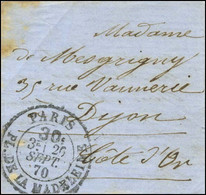 Madame
de Mesgrigny
35 rue Vannerie
Dijon
Côte d'Or
PARIS
3E 26
SEPT.
70
PL. DE LA MADELEINE